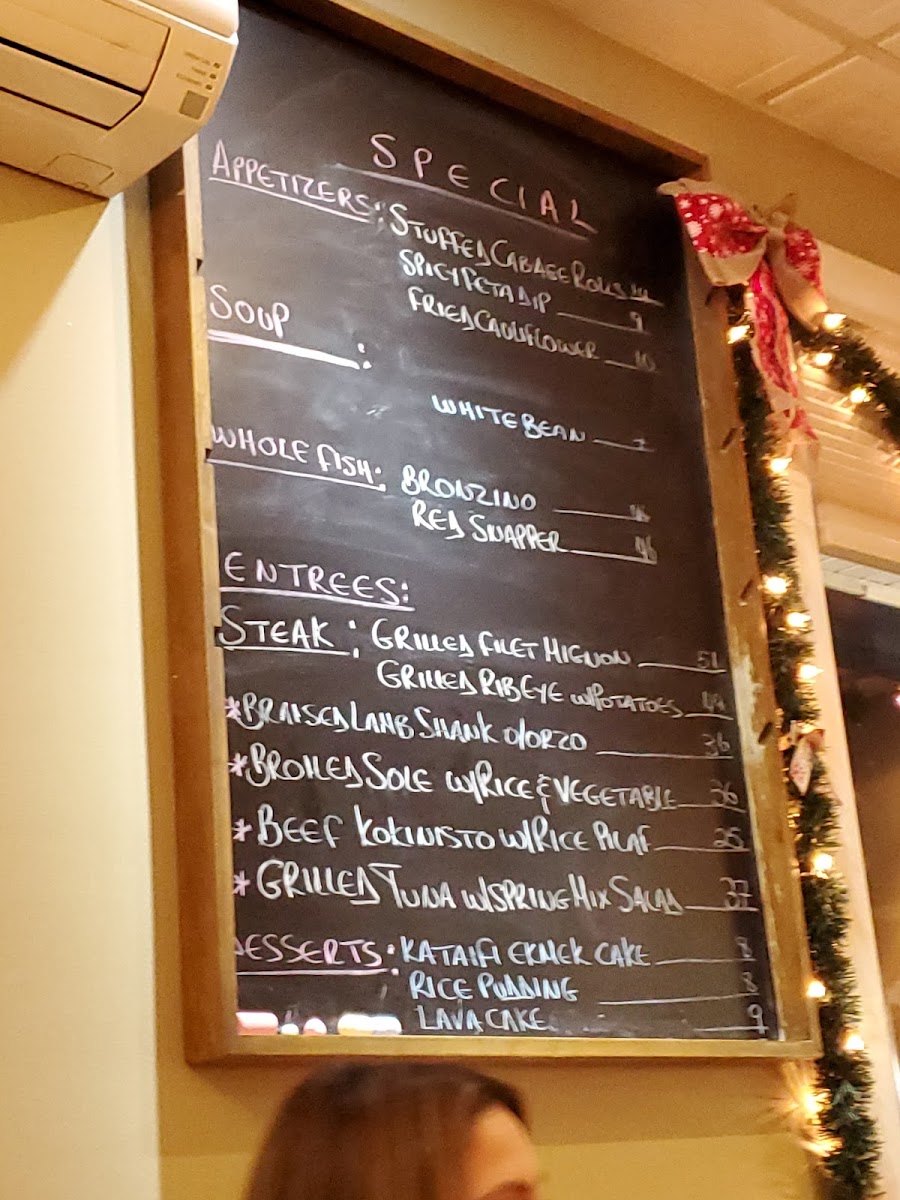 SPECIAL
APPETIZERS: STUFFED CABAGE ROLLS
SPICY FETA DIP 9
FRIED CAULIFLOWER 10
SOUP:
WHITE BEAN 7
WHOLE FISH: BRONZINO
RED SNAPPER 46
ENTREES:
STEAK: GRILLED FILET MIGNON 51
GRILLED RIB EYE W/POTATOES
*BRAISED LAMB SHANK O/ORZO 36
*BROILED SOLE W/RICE & VEGETABLE 36
*BEEF KOKINISTO W/RICE PILAF 25
*GRILLED TUNA W/SPRING MIX SALAD 37
DESSERTS: KATAIFI EKMEK CAKE 8
RICE PUDDING 8
LAVA CAKE 9